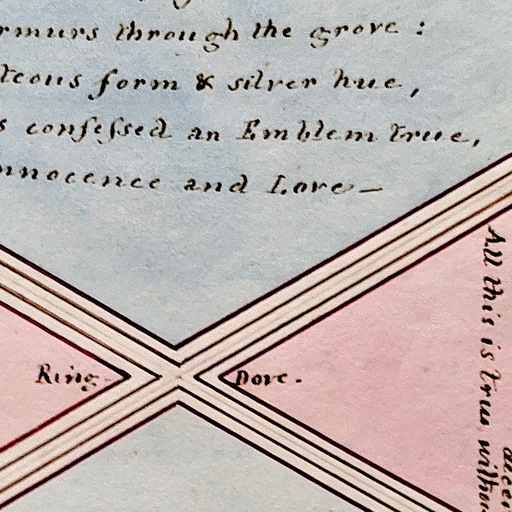 rmurs through the grove :
teous form & silver hue,
s confeſsed an Emblem true,
nnocence and Love —
Ring-
Dove.
All this is true withou
decei